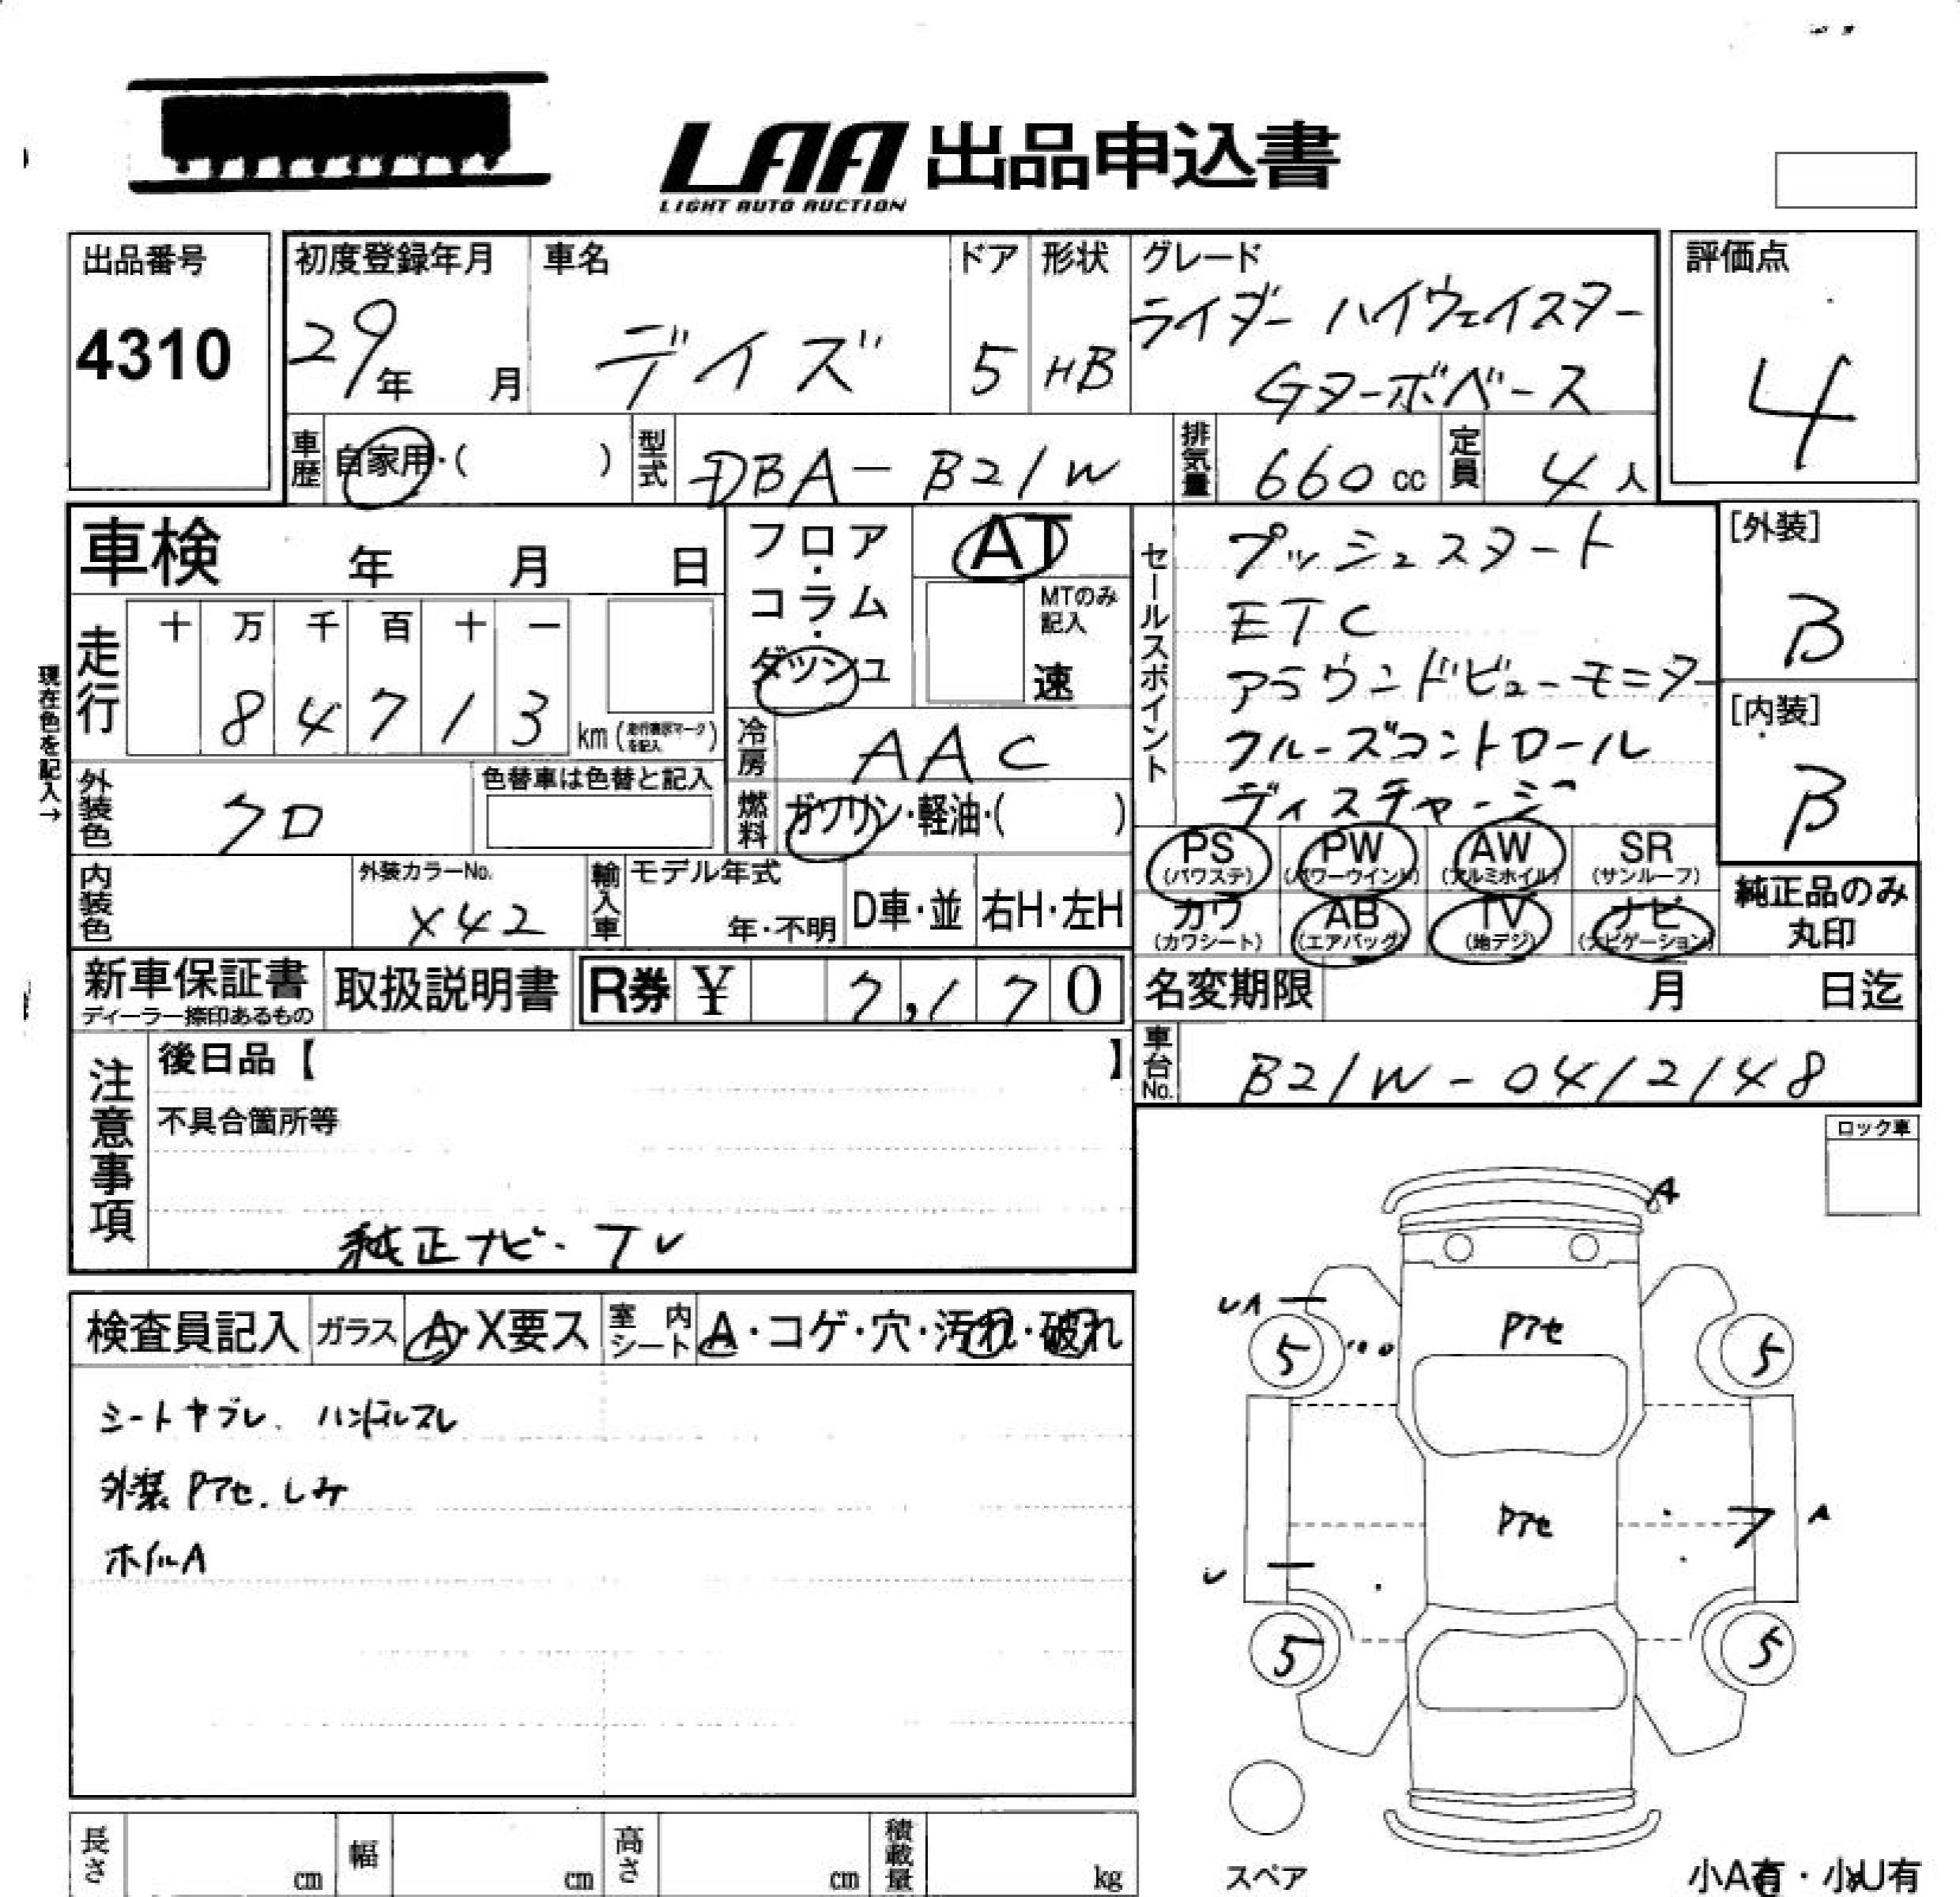 LAA 出品申込書
LIGHT AUTO AUCTION
出品番号
4310
初度登録年月
29年 月
車名
デイズ
ドア
5
形状
HB
グレード
ライダー ハイウェイスター
Gターボベース
評価点
4
車歴
自家用・( )
型式
DBA-B21W
排気量
660 cc
定員
4 人
車検 年 月 日
フロア・コラム・ダッシュ
AT
MTのみ記入
速
セールスポイント
プッシュスタート
ETC
アラウンドビューモニター
クルーズコントロール
ディスチャージ
[外装]
B
[内装]
B
現在色を記入→
走行
十 万 千 百 十 一
8 4 7 1 3
km (走行表示マークを記入)
冷房
AAC
外装色
クロ
色替車は色替と記入
燃料
ガソリン・軽油・( )
PS (パワステ)
PW (パワーウインド)
AW (アルミホイル)
SR (サンルーフ)
カワ (カワシート)
AB (エアバッグ)
TV (地デジ)
ナビ (ナビゲーション)
純正品のみ
丸印
内装色
外装カラーNo.
X42
輸入車
モデル年式
年・不明
D車・並
右H・左H
新車保証書
ディーラー捺印あるもの
取扱説明書
R券 ¥ 7,170
名変期限 月 日迄
車台No.
B21W-0412148
注意事項
後日品【 】
不具合箇所等
純正ナビ・TV
ロック車
検査員記入
ガラス
A・X要ス
室内シート
A・コゲ・穴・汚れ・破れ
シートヤブレ、ハンドルスレ
外装Pアセ、しみ
ホイルA
A
UA
Pアセ
5
5
Pアセ
A
U
5
5
スペア
小A有・小U有
長さ cm
幅 cm
高さ cm
積載量 kg